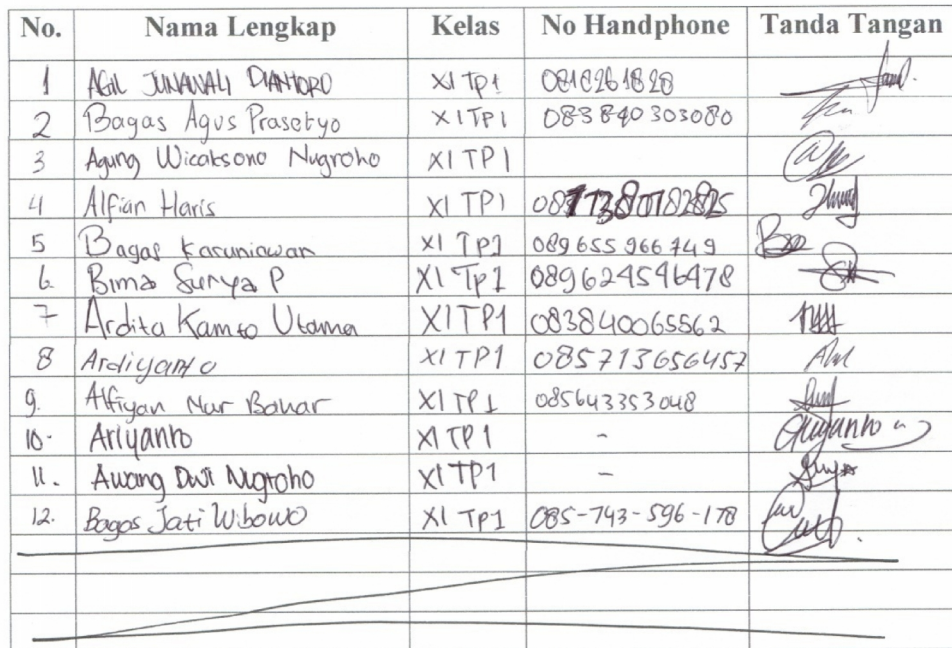 No. Nama Lengkap Kelas No Handphone Tanda Tangan
1 AGIL JUNAWALI DIANTORO XI TP1 0818261828
2 Bagas Agus Prasetyo XI TP1 083840303080
3 Agung Wicaksono Nugroho XI TP1
4 Alfian Haris XI TP1
5 Bagas Karuniawan XI TP1 089655966749
6. Bima Surya P XI TP1 089624546478
7 Ardita Kamto Utama XI TP1 083840065562
8 Ardiyanto XI TP1 085713656457
9. Alfiyan Nur Bahar XI TP1 085643353048
10. Ariyanto XI TP1 - Ariyanto
11. Awang Dwi Nugroho XI TP1 -
12. Bagas Jati Wibowo XI TP1 085-743-596-178